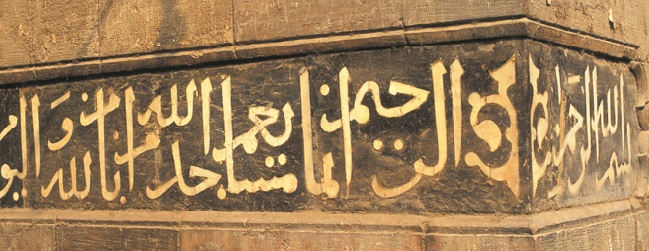 بسم الله الرحمن الرحيم انما يعمر مساجد الله من امن بالله واليوم